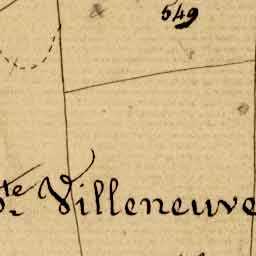 549
te. Villeneuve